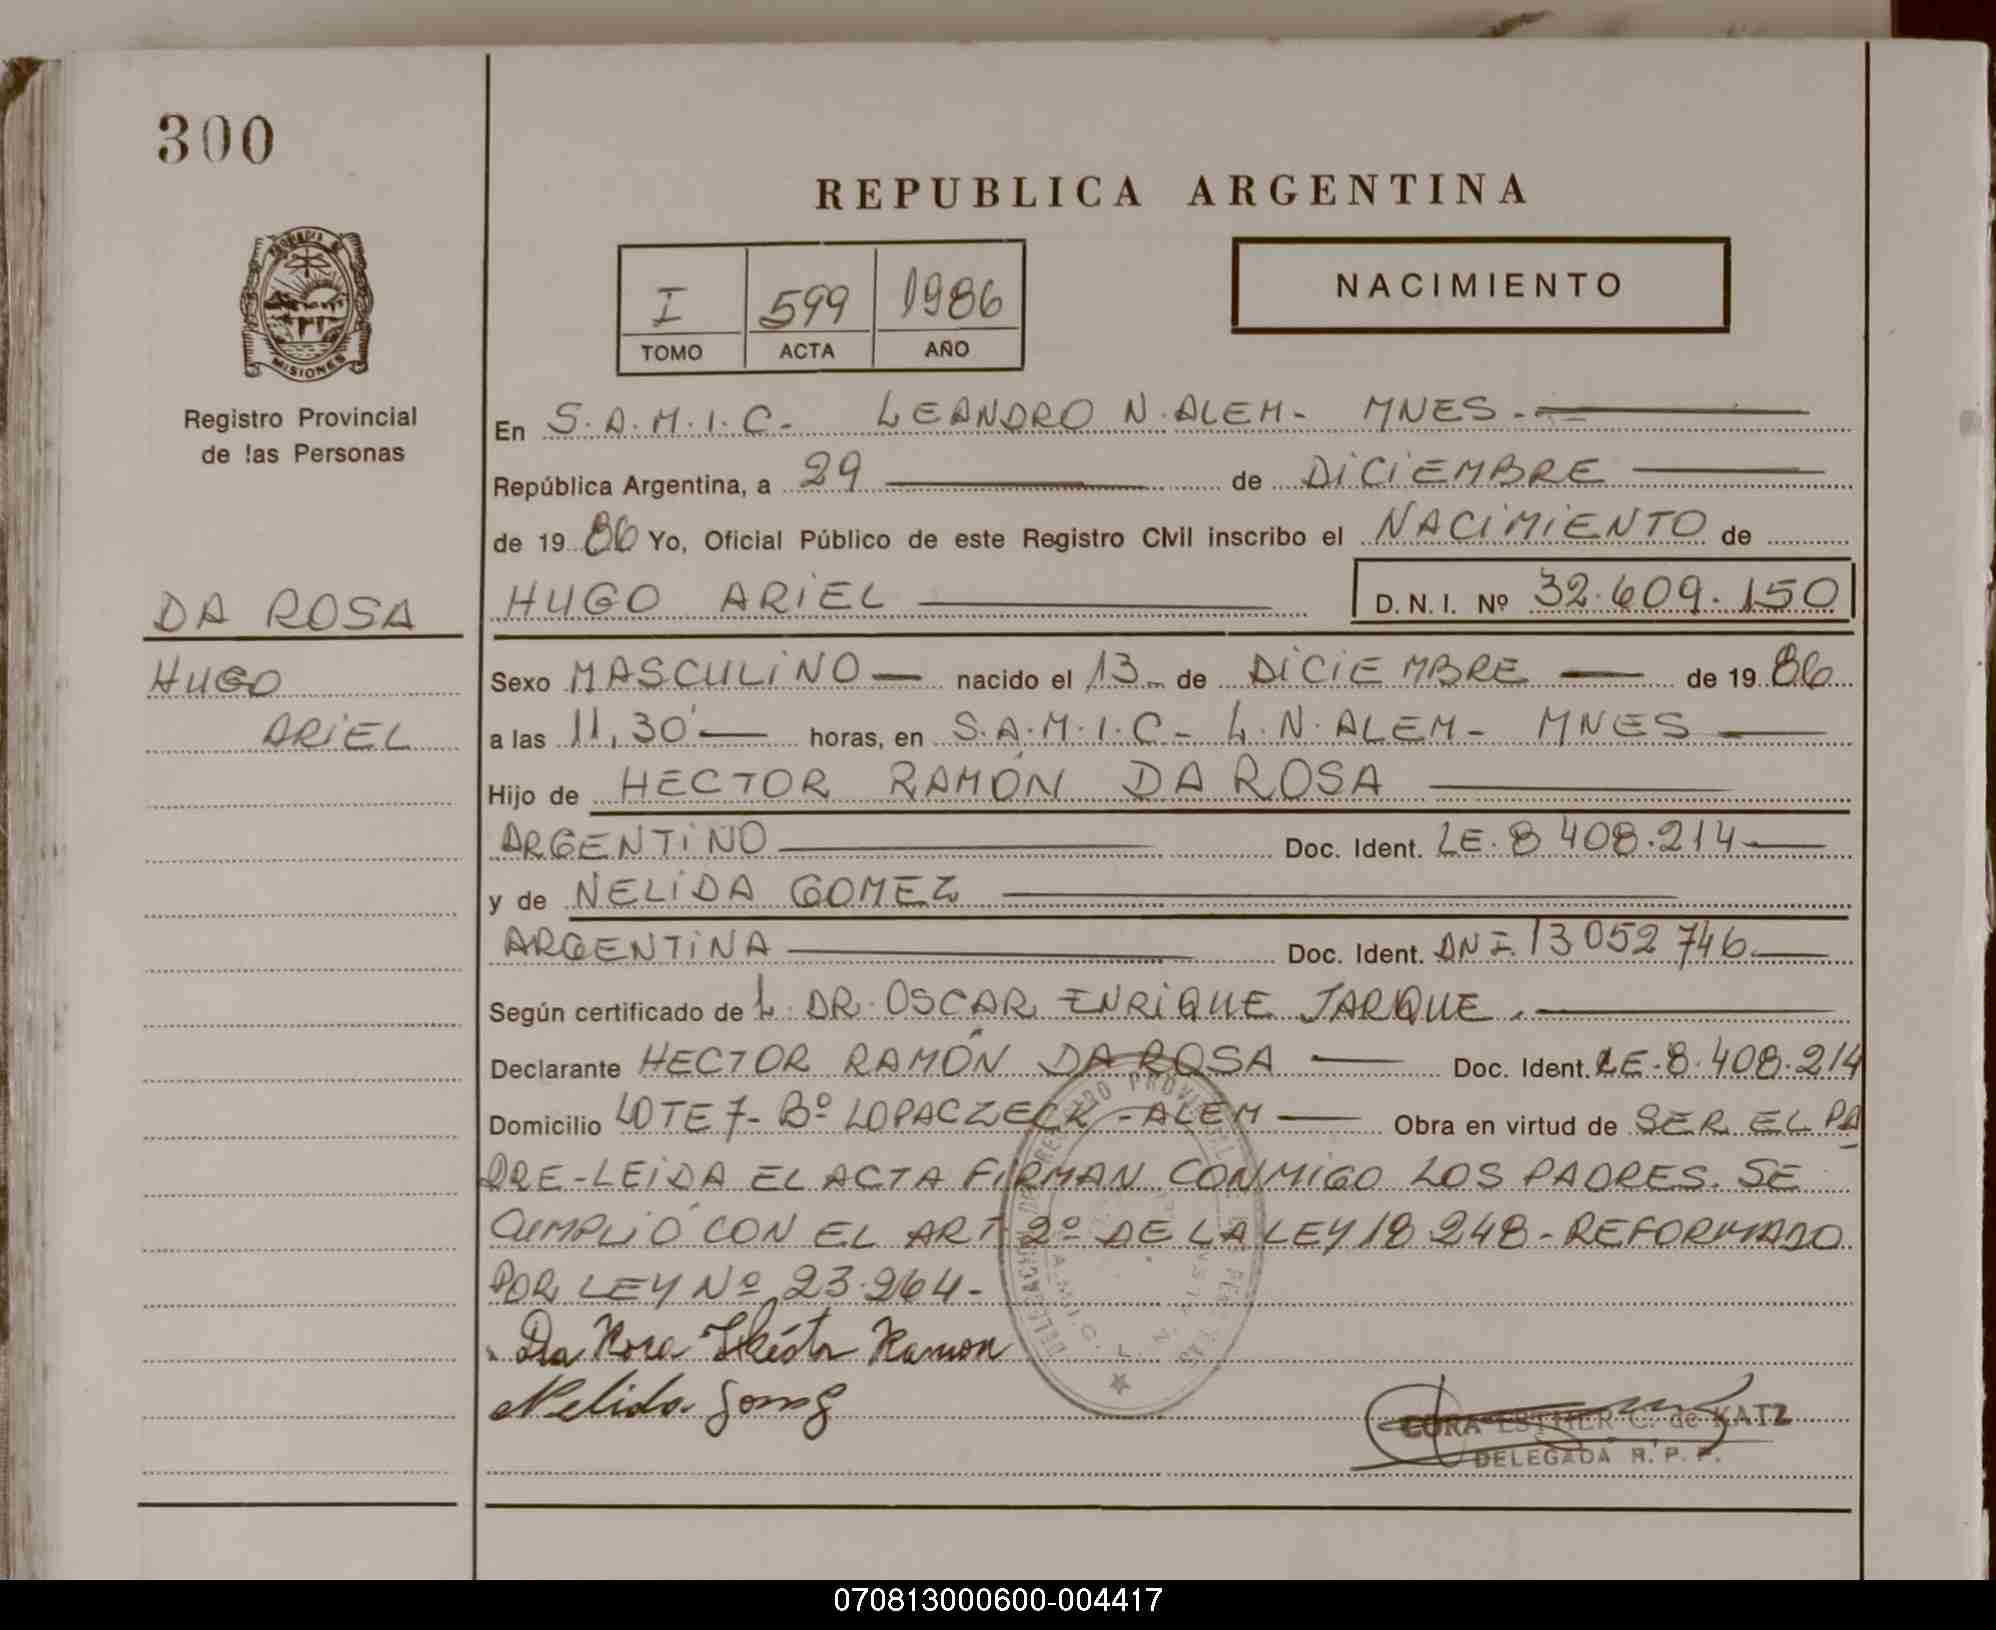 300
REPUBLICA ARGENTINA
PROVINCIA DE
MISIONES
Registro Provincial
de las Personas
I 599 1986
TOMO ACTA AÑO
NACIMIENTO
En S.A.M.I.C- LEANDRO N.ALEM- MNES-
República Argentina, a 29 de DICIEMBRE
de 1986 Yo, Oficial Público de este Registro Civil inscribo el NACIMIENTO de
DA ROSA
HUGO ARIEL D.N.I. Nº 32.609.150
HUGO
ARIEL
Sexo MASCULINO nacido el 13 de DICIEMBRE de 1986
a las 11,30 horas, en S.A.M.I.C- L.N.ALEM- MNES
Hijo de HECTOR RAMÓN DA ROSA
ARGENTINO Doc. Ident. LE.8 408.214
y de NELIDA GOMEZ
ARGENTINA Doc. Ident. DNI.13 052 746
Según certificado de L. DR. OSCAR ENRIQUE JARQUE.
Declarante HECTOR RAMÓN DA ROSA Doc. Ident. LE-8.408.214
Domicilio LOTE 7- Bº LOPACZECK-ALEM Obra en virtud de SER EL PA
DRE-LEIDA EL ACTA FIRMAN CONMIGO LOS PADRES. SE
CUMPLIÓ CON EL ART 2º DE LA LEY 18 248-REFORMADO
POR LEY Nº 23.264-
Da Rosa Héctor Ramon
Nelida Gomez
CORA ESTHER C. de KATZ
DELEGADA R.P.P.
070813000600-004417